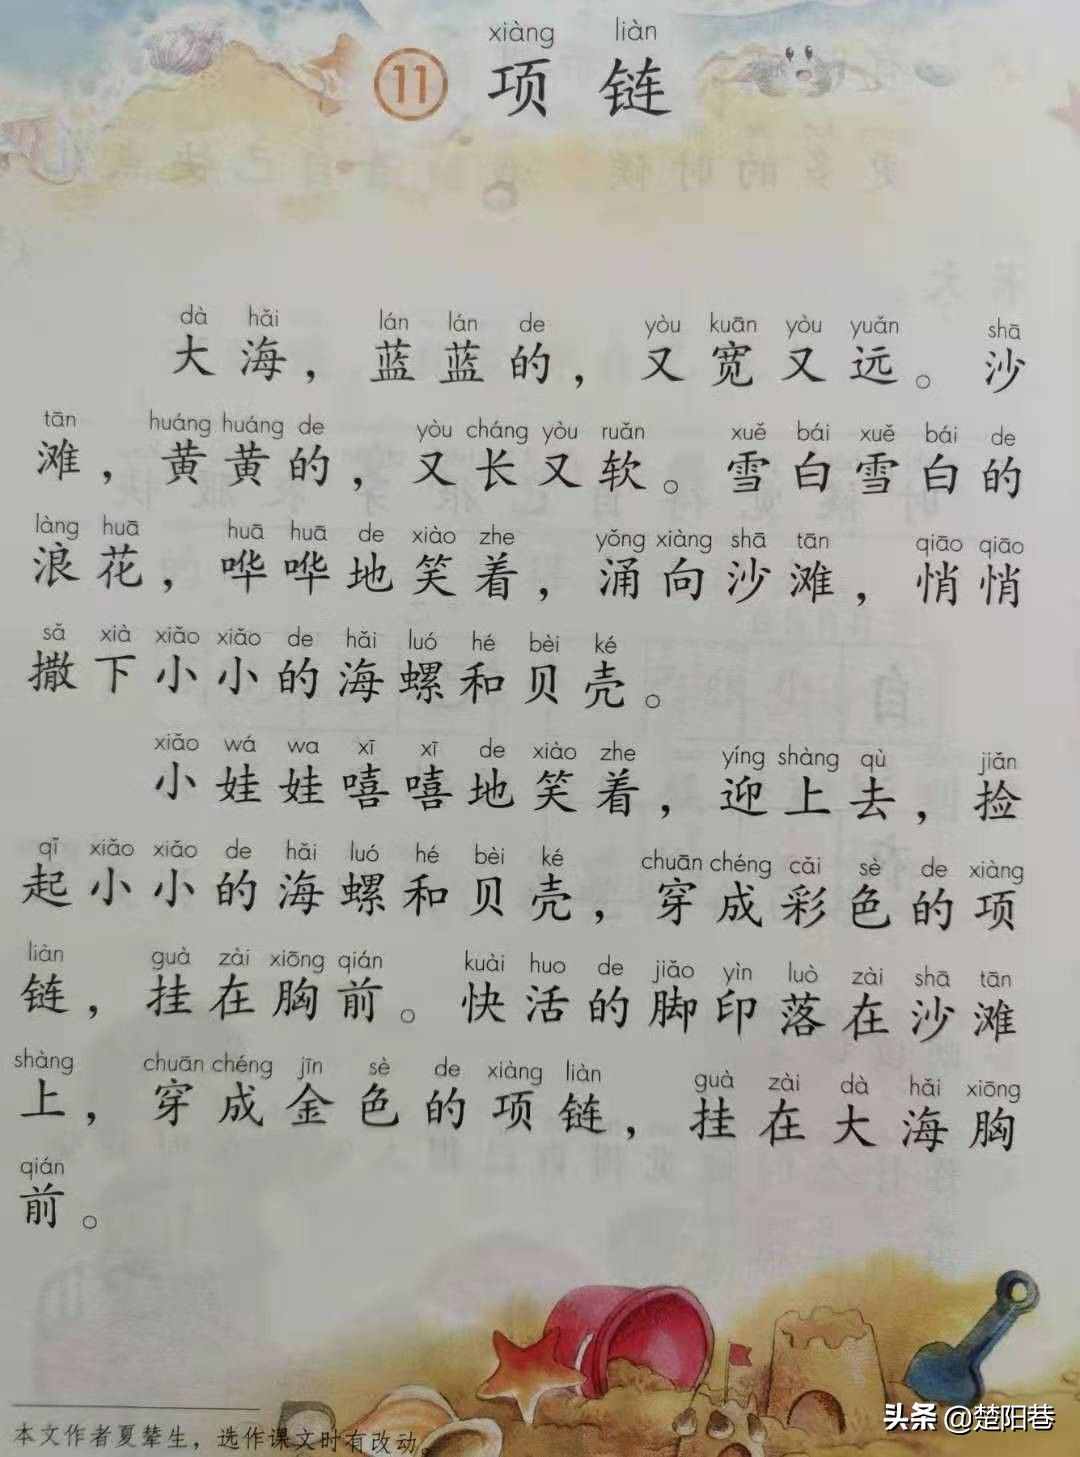 xiàng liàn
11 项链
dà hǎi lán lán de yòu kuān yòu yuǎn shā
大海，蓝蓝的，又宽又远。沙
tān huáng huáng de yòu cháng yòu ruǎn xuě bái xuě bái de
滩，黄黄的，又长又软。雪白雪白的
làng huā huā huā de xiào zhe yǒng xiàng shā tān qiāo qiāo
浪花，哗哗地笑着，涌向沙滩，悄悄
sǎ xià xiǎo xiǎo de hǎi luó hé bèi ké
撒下小小的海螺和贝壳。
xiǎo wá wa xī xī de xiào zhe yíng shàng qù jiǎn
小娃娃嘻嘻地笑着，迎上去，捡
qǐ xiǎo xiǎo de hǎi luó hé bèi ké chuān chéng cǎi sè de xiàng
起小小的海螺和贝壳，穿成彩色的项
liàn guà zài xiōng qián kuài huo de jiǎo yìn luò zài shā tān
链，挂在胸前。快活的脚印落在沙滩
shàng chuān chéng jīn sè de xiàng liàn guà zài dà hǎi xiōng
上，穿成金色的项链，挂在大海胸
qián
前。
本文作者夏辇生，选作课文时有改动。
头条 @楚阳巷